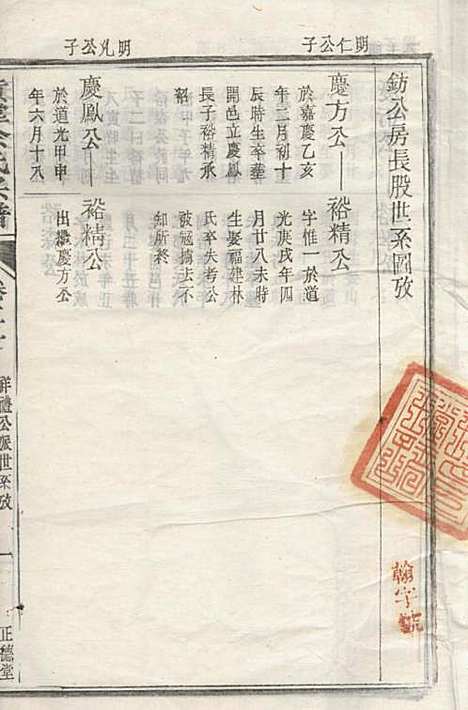 鈁公房長股世系圖攷
明仁公子
慶方公——裕精公
於嘉慶乙亥
年二月初十
辰時生卒葬
開邑立慶鳳
長子裕精承
紹
字惟一於道
光庚戌年四
月廿八未時
生娶福建林
氏卒失考公
被冠擄去不
知所終
明允公子
慶鳳公——裕精公
於道光甲申
年六月十八
出繼慶方公
祥禮公派世系攷
一
正德堂
翰字號